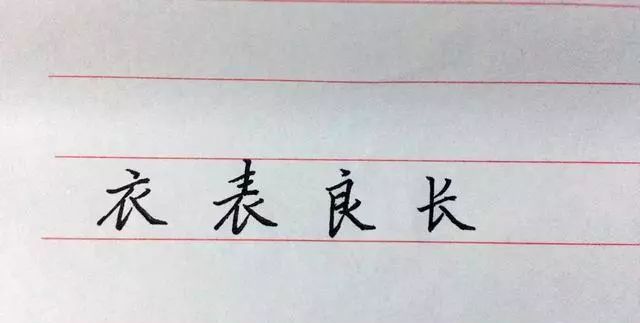 衣 表 良 长